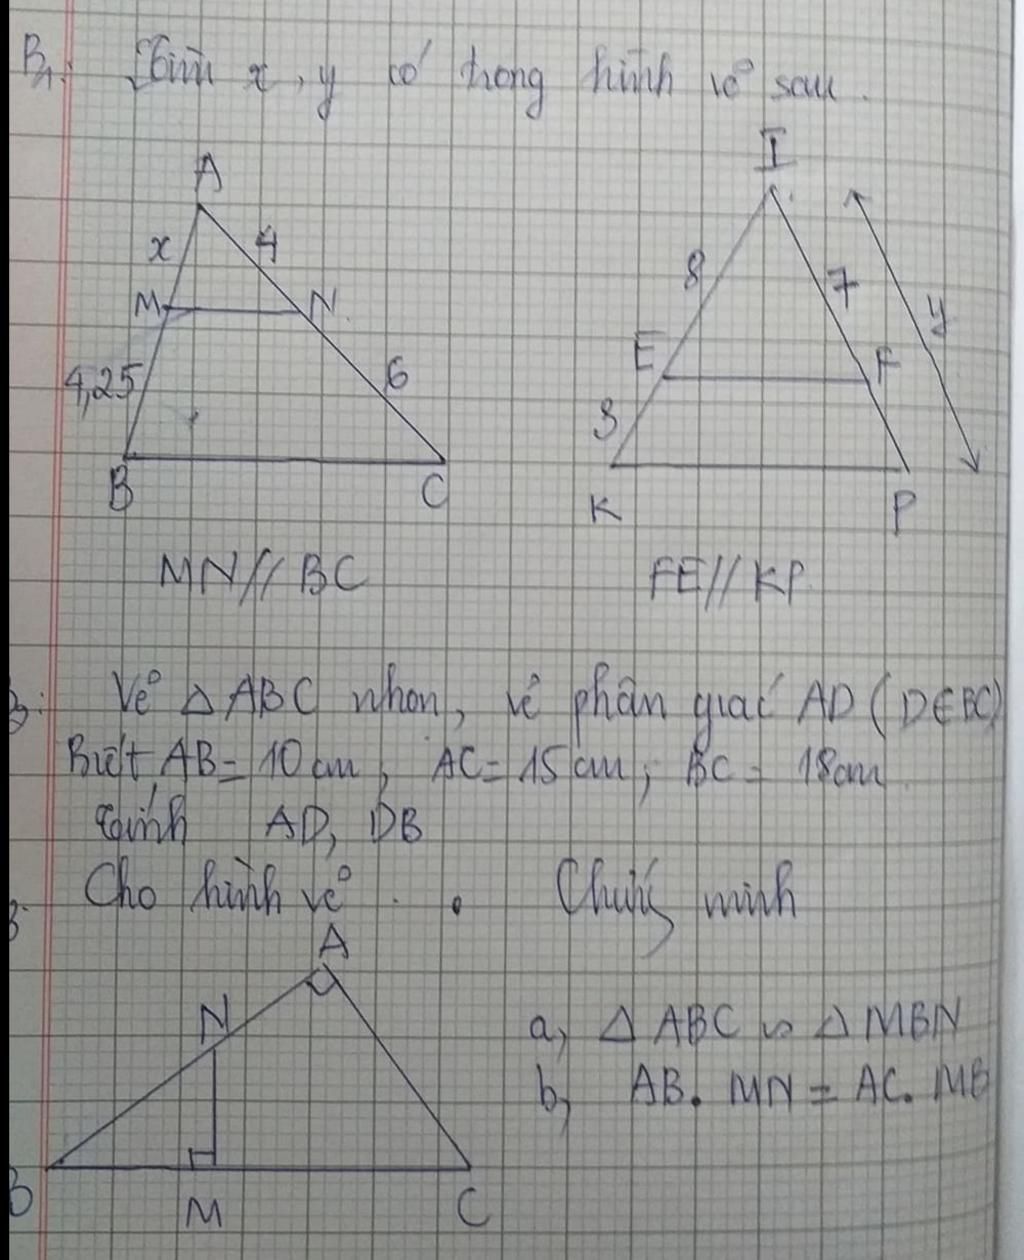 B1: Tìm x, y có trong hình vẽ sau.
A
x
4
M
N
4,25
6
B
C
MN // BC
I
8
7
y
E
F
3
K
P
FE // KP
B: Vẽ Δ ABC nhọn, vẽ phân giác AD (D∈BC)
Biết AB = 10 cm, AC = 15 cm, BC = 18 cm
Tính AD, DB
B: Cho hình vẽ. Chứng minh
A
N
B
M
C
a, Δ ABC ∽ Δ MBN
b, AB. MN = AC. MB